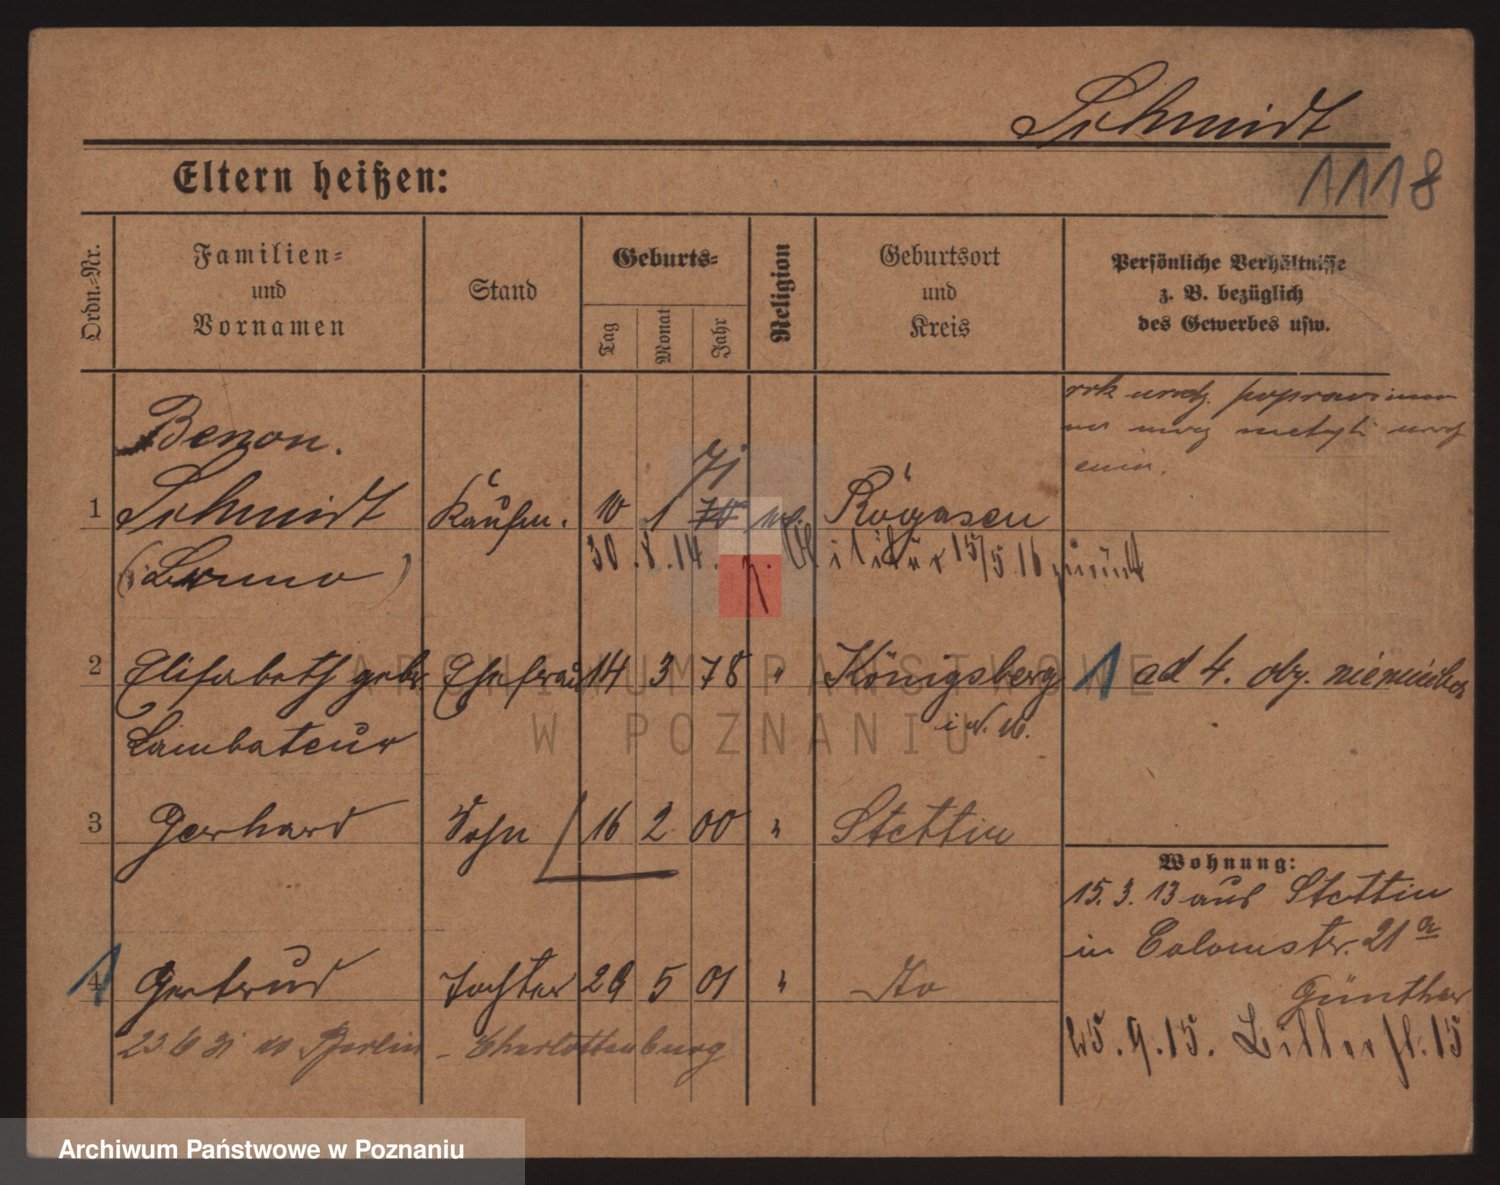 Schmidt
1118
Eltern heißen:
Ordn.-Nr.
Familien-
und
Vornamen
Stand
Geburts-
Tag
Monat
Jahr
Religion
Geburtsort
und
Kreis
Persönliche Verhältnisse
z. B. bezüglich
des Gewerbes usw.
Benon.
1 Schmidt Kaufm. 10 1 70 71 Rogasen
(Bruno)
30.8.14. z. Militär 15/5 16 zurück
2 Elisabeth geb. Ehefrau 14 3 78 " Königsberg 1 ad 4. ob. niemiecka
Lambateur i. N. M.
3 Gerhard Sohn 16 2 00 " Stettin
Wohnung:
15.3.13 aus Stettin
in Colomstr. 21 a
4 Gertrud Tochter 29 5 01 " do
Günther
23 6 31 Berlin - Charlottenburg
25.9.15. 15
ARCHIWUM PAŃSTWOWE
W POZNANIU
Archiwum Państwowe w Poznaniu